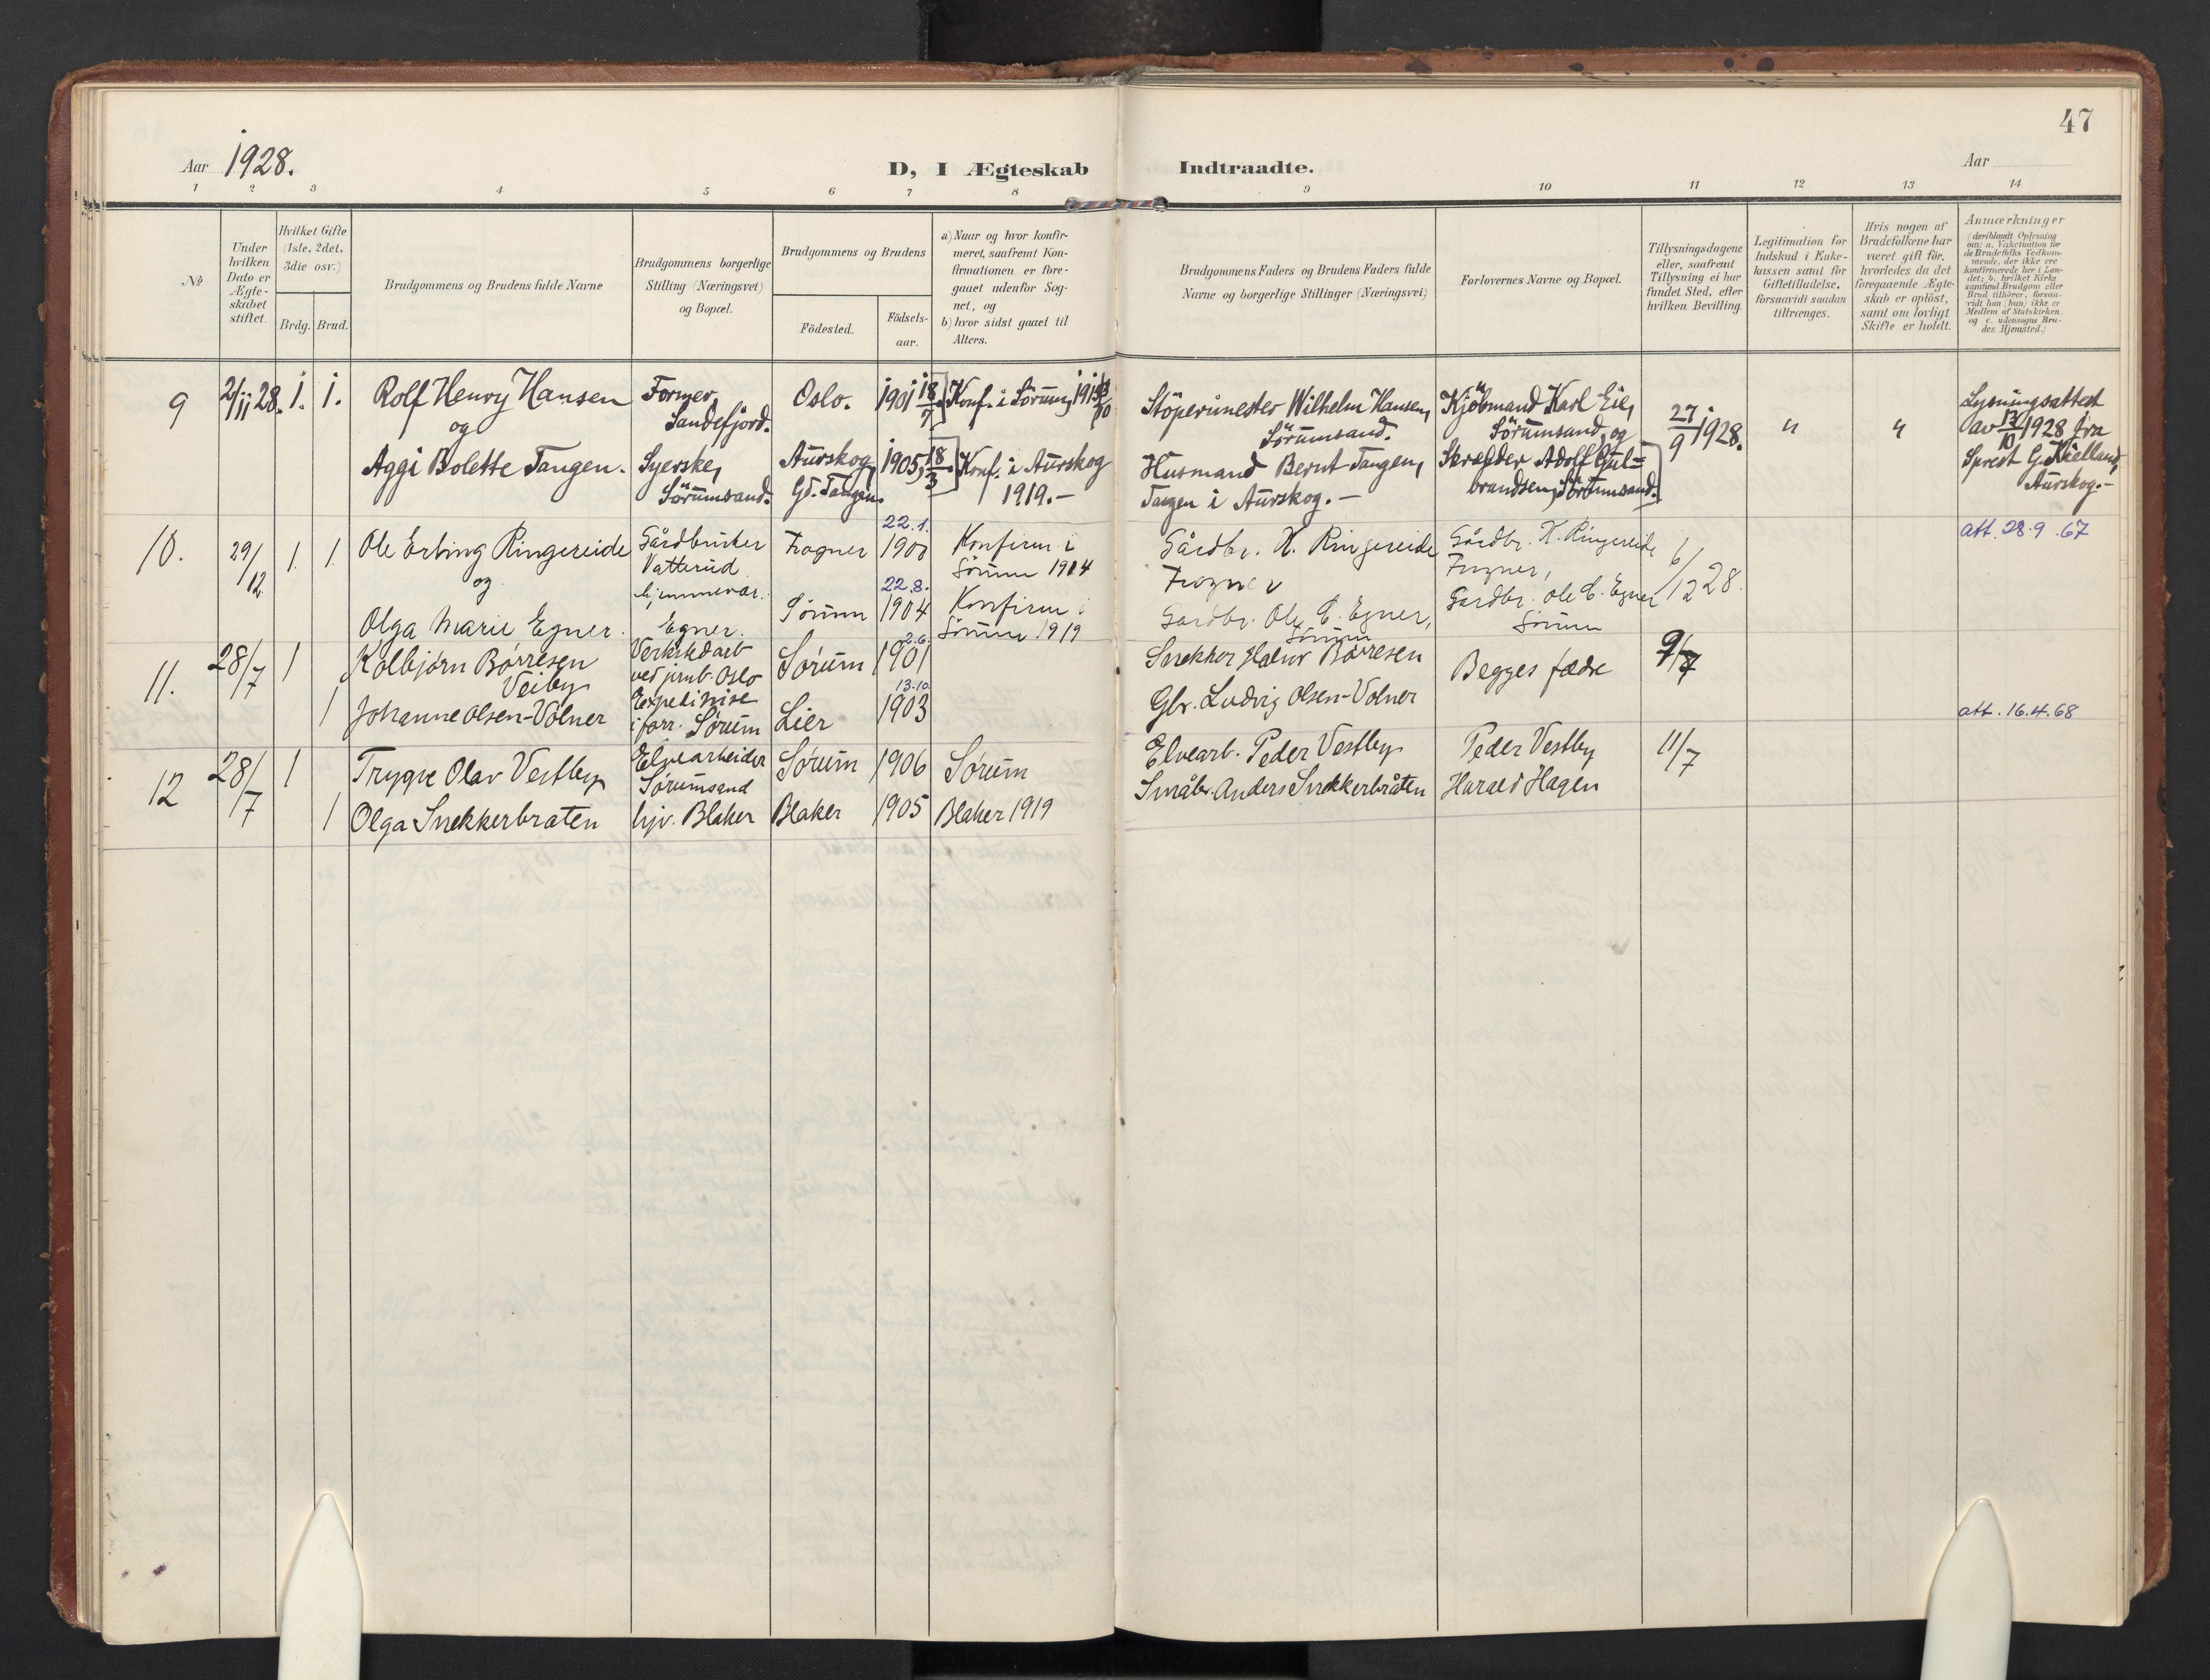 47
Aar 1928.
D, I Ægteskab Indtraadte.
Aar
1 2 3 4 5 6 7 8 9 10 11 12 13 14
No
Under hvilken Dato er Ægteskabet stiftet.
Hvilket Gifte (1ste, 2det, 3die osv.)
Brdg. Brud.
Brudgommens og Brudens fulde Navne
Brudgommens borgerlige Stilling (Næringsvei) og Bopæl.
Brudgommens og Brudens
Födested.
Födsels-aar.
a) Naar og hvor konfir-
meret, saafremt Kon-
firmationen er fore-
gaaet udenfor Sog-
net, og
b) hvor sidst gaaet til
Alters.
Brudgommens Faders og Brudens Faders fulde
Navne og borgerlige Stillinger (Næringsvei)
Forlovernes Navne og Bopæl.
Tillysningsdagene
eller, saafremt
Tillysning ei har
fundet Sted, efter
hvilken Bevilling.
Legitimation for
Indskud i Enke-
kassen samt for
Giftetilladelse,
forsaavidt saadan
tiltrænges.
Hvis nogen af
Brudefolkene har
været gift för,
hvorledes da det
foregaaende Ægte-
skab er oplöst,
samt om lovligt
Skifte er holdt.
Anmærkninger
(deriblandt Oplysning
om: a. Vakcination for
de Brudefolks Vedkom-
mende, der ikke ere
konfirmerede her i Lan-
det; b. hvilket Kirke-
samfund Brudgom eller
Brud tilhörer, forsaa-
vidt han (hun) ikke er
Medlem af Statskirken,
og c. udensogns Bru-
des Hjemsted.)
9 2/11 28. 1. 1. Rolf Henry Hansen
og
Former, Sandefjord. Oslo. 1901 18/7 Konf. i Sörum,
Støperimester Wilhelm Hansen, Sörumsand.
Kjöbmand Karl Eie, Sörumsand, og
27/9 1928. " "
Lysningsattest
av 13/10 1928 fra
Sprest G. Kielland,
Aurskog.-
Aggi Bolette Tangen. Syerske, Sörumsand. Aurskog, Gd. Tangen. 1905, 18/3 Konf. i Aurskog 1919.-
Husmand Bernt Tangen, Tangen i Aurskog.-
Skræder Adolf Gul=
brandsen, Sörumsand.
10. 29/12 1. 1. Ole Erling Ringereide
og
Gårdbruker Vatterud Frogner 22.1. 1900 Konfirm i Sörum 1914
Gårdbr. K. Ringereide Frogner
Gårdbr. K. Ringereide
Frogner,
6/12 28.
att. 28.9.67
Olga Marie Egner. hjemmevær. Egner. Sörum 22.8. 1904 Konfirm i Sörum 1919
Gårdbr. Ole C. Egner, Sörum
Gårdbr. Ole C. Egner
Sörum
11. 28/7 1 Kolbjørn Børresen
Veiby
Verkstedarb ved jernb. Oslo Sørum 2.6. 1901
Snekker Halvor Børresen
Begges fædre
9/7
1 Johanne Olsen-Volner i forr. Sørum Lier 13.10. 1903
Gbr. Ludvig Olsen-Volner
att. 16.4.68
12 28/7 1 Trygve Olav Vestby Elvearbeider Sørumsand Sørum 1906 Sørum
Elvearb. Peder Vestby
Peder Vestby
11/7
1 Olga Snekkerbraten hjv. Blaker Blaker 1905 Blaker 1919
Småbr. Anders Snekkerbråten
Harald Hagen